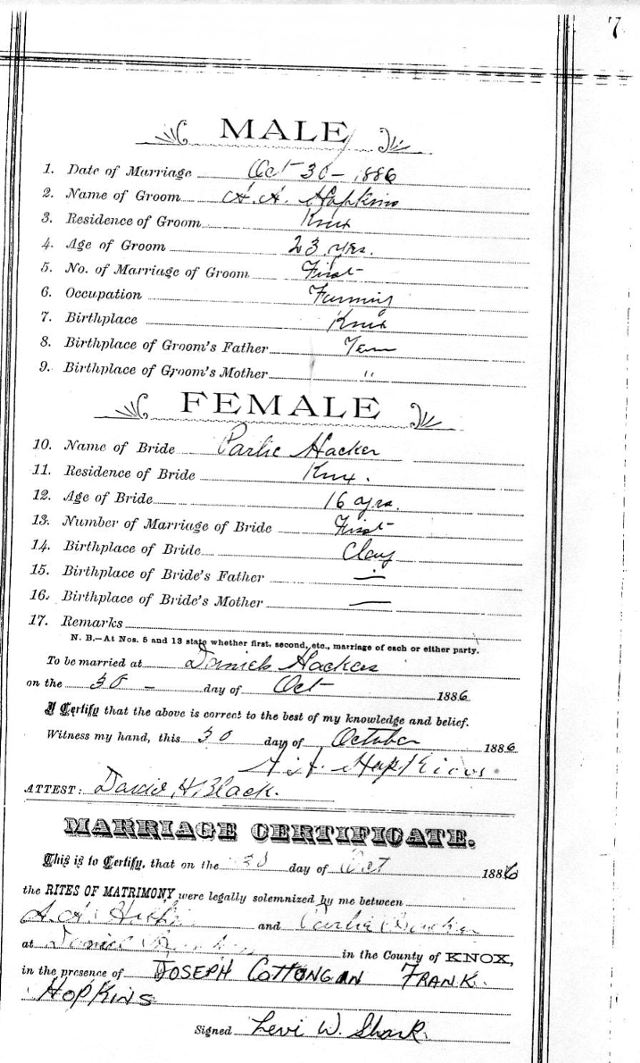 7
MALE
1. Date of Marriage Oct 30 - 1886
2. Name of Groom A. A. Hopkins
3. Residence of Groom Knox
4. Age of Groom 23 yrs.
5. No. of Marriage of Groom First
6. Occupation Farming
7. Birthplace Knox
8. Birthplace of Groom's Father Tenn
9. Birthplace of Groom's Mother "
FEMALE
10. Name of Bride Parlie Hacker
11. Residence of Bride Knox.
12. Age of Bride 16 yrs.
13. Number of Marriage of Bride First
14. Birthplace of Bride Clay
15. Birthplace of Bride's Father —
16. Birthplace of Bride's Mother —
17. Remarks
N. B.—At Nos. 5 and 13 state whether first, second, etc., marriage of each or either party.
To be married at Daniel Hackers
on the 30 - day of Oct 1886
I Certify that the above is correct to the best of my knowledge and belief.
Witness my hand, this 30 day of October 1886
Hopkins
ATTEST: David H. Black.
MARRIAGE CERTIFICATE.
This is to Certify, that on the 30 day of Oct 1886
the RITES OF MATRIMONY were legally solemnized by me between
and Parlie
at Daniel in the County of KNOX,
in the presence of JOSEPH COTTONGIN FRANK
HOPKINS
Signed Levi W. Shark.